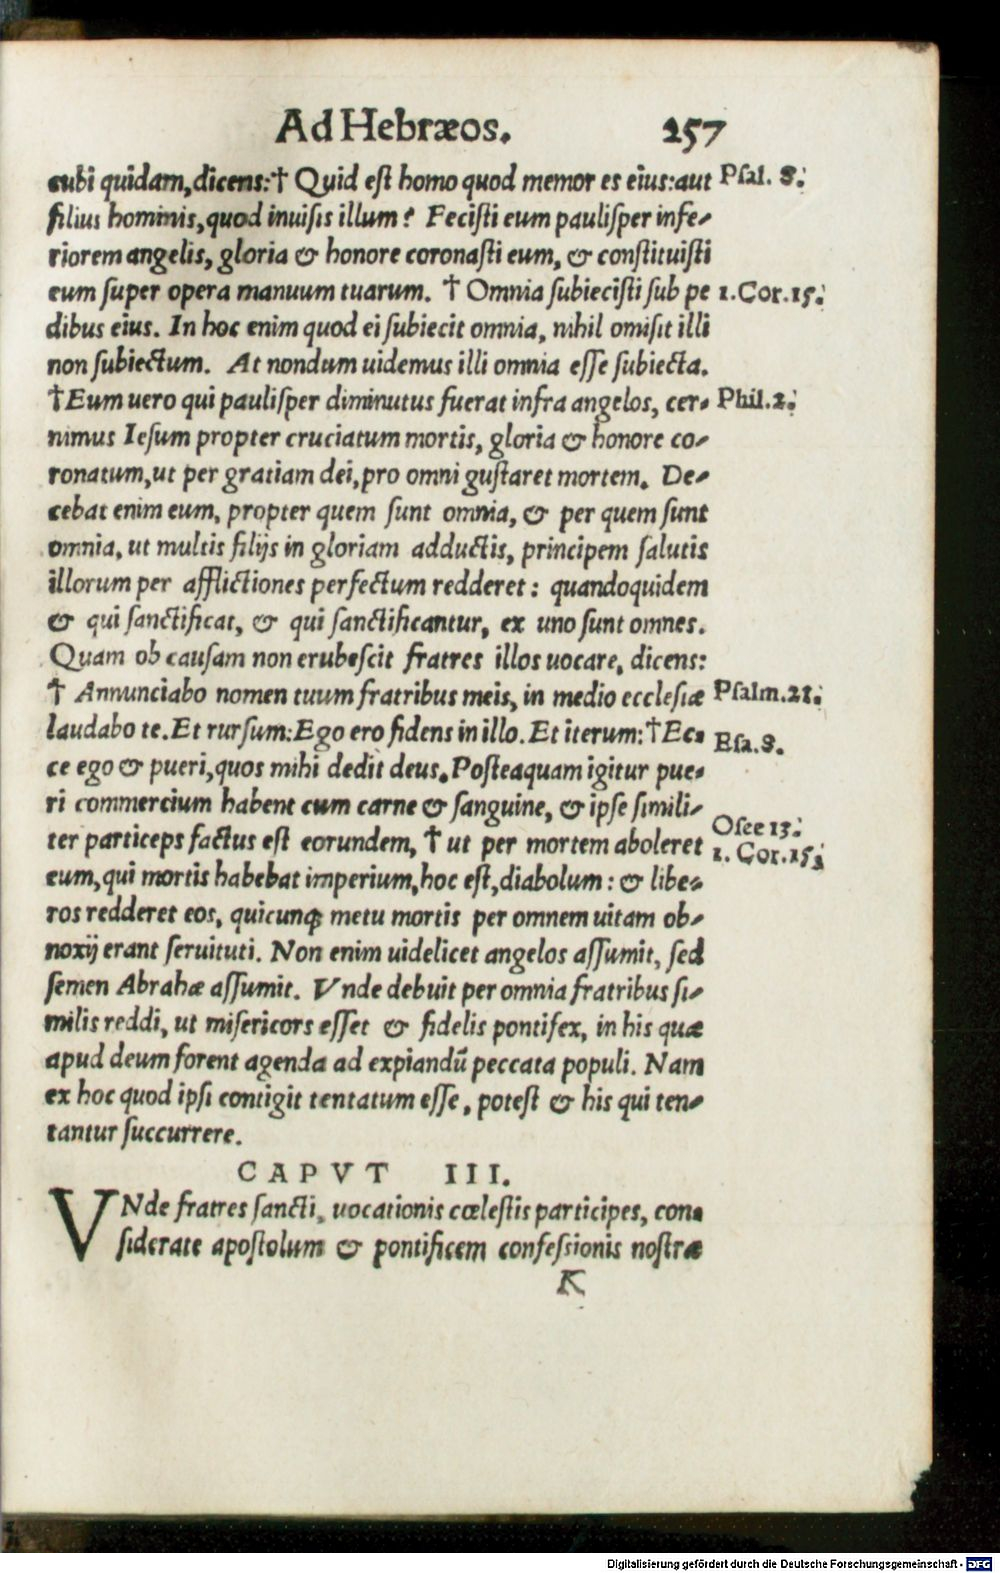 Ad Hebræos. 257
cubi quidam, dicens:† Quid eſt homo quod memor es eius: aut Pſal. 8.
filius hominis, quod inuiſis illum? Feciſti eum pauliſper infe-
riorem angelis, gloria & honore coronaſti eum, & conſtituiſti
eum ſuper opera manuum tuarum. † Omnia ſubieciſti ſub pe 1. Cor. 15.
dibus eius. In hoc enim quod ei ſubiecit omnia, nihil omiſit illi
non ſubiectum. At nondum uidemus illi omnia eſſe ſubiecta.
†Eum uero qui pauliſper diminutus fuerat infra angelos, cer- Phil. 2.
nimus Ieſum propter cruciatum mortis, gloria & honore co-
ronatum, ut per gratiam dei, pro omni guſtaret mortem. De-
cebat enim eum, propter quem ſunt omnia, & per quem ſunt
omnia, ut multis filijs in gloriam adductis, principem ſalutis
illorum per afflictiones perfectum redderet: quandoquidem
& qui ſanctificat, & qui ſanctificantur, ex uno ſunt omnes.
Quam ob cauſam non erubeſcit fratres illos uocare, dicens:
† Annunciabo nomen tuum fratribus meis, in medio eccleſiæ Pſalm. 21.
laudabo te. Et rurſum: Ego ero fidens in illo. Et iterum: † Ec-
Eſa. 8.
ce ego & pueri, quos mihi dedit deus. Poſteaquam igitur pue-
ri commercium habent cum carne & ſanguine, & ipſe ſimili-
Oſee 13.
ter particeps factus eſt eorundem, † ut per mortem aboleret
1. Cor. 15.
eum, qui mortis habebat imperium, hoc eſt, diabolum: & libe-
ros redderet eos, quicunq; metu mortis per omnem uitam ob-
noxij erant ſeruituti. Non enim uidelicet angelos aſſumit, ſed
ſemen Abrahæ aſſumit. Vnde debuit per omnia fratribus ſi-
milis reddi, ut miſericors eſſet & fidelis pontifex, in his quæ
apud deum forent agenda ad expiandū peccata populi. Nam
ex hoc quod ipſi contigit tentatum eſſe, poteſt & his qui ten-
tantur ſuccurrere.
CAPVT III.
VNde fratres ſancti, uocationis cœleſtis participes, con-
ſiderate apoſtolum & pontificem confeſsionis noſtræ
K
Digitalisierung gefördert durch die Deutsche Forschungsgemeinschaft - DFG